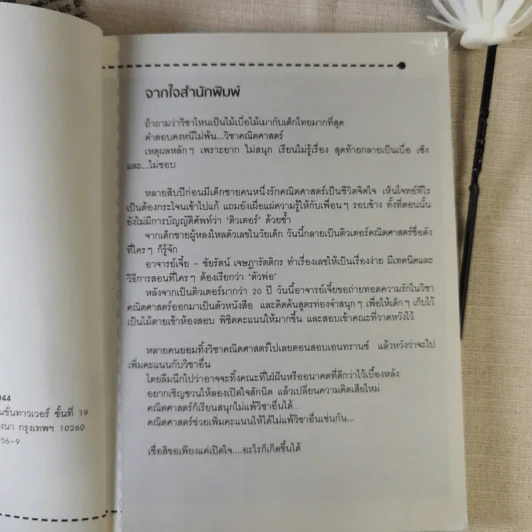 จากใจสำนักพิมพ์
ถ้าถามว่าวิชาไหนเป็นไม้เบื่อไม้เมากับเด็กไทยมากที่สุด
คำตอบคงหนีไม่พ้น...วิชาคณิตศาสตร์
เหตุผลหลักๆ เพราะยาก ไม่สนุก เรียนไม่รู้เรื่อง สุดท้ายกลายเป็นเบื่อ เซ็ง
และ...ไม่ชอบ
หลายสิบปีก่อนมีเด็กชายคนหนึ่งรักคณิตศาสตร์เป็นชีวิตจิตใจ เห็นโจทย์ทีไร
เป็นต้องกระโจนเข้าไปแก้ แถมยังเผื่อแผ่ความรู้ให้กับเพื่อนๆ รอบข้าง ทั้งที่ตอนนั้น
ยังไม่มีการบัญญัติศัพท์ว่า 'ติวเตอร์' ด้วยซ้ำ
จากเด็กชายผู้หลงใหลตัวเลขในวัยเด็ก วันนี้กลายเป็นติวเตอร์คณิตศาสตร์ชื่อดัง
ที่ใครๆ ก็รู้จัก
อาจารย์เจี๋ย - ชัยรัตน์ เจษฎารัตติกร ทำเรื่องเลขให้เป็นเรื่องง่าย มีเทคนิคและ
วิธีการสอนที่ใครๆ ต้องเรียกว่า 'ตัวพ่อ'
หลังจากเป็นติวเตอร์มากว่า 20 ปี วันนี้อาจารย์เจี๋ยขอถ่ายทอดความรักในวิชา
คณิตศาสตร์ออกมาเป็นตัวหนังสือ และคิดค้นสูตรท่องจำสนุกๆ เพื่อให้เด็กๆ เก็บไว้
เป็นไม้ตายเข้าห้องสอบ พิชิตคะแนนให้มากขึ้น และสอบเข้าคณะที่วาดหวังไว้
หลายคนยอมทิ้งวิชาคณิตศาสตร์ไปเลยตอนสอบเอนทรานซ์ แล้วหวังว่าจะไป
เพิ่มคะแนนกับวิชาอื่น
โดยลืมนึกไปว่าอาจจะทิ้งคณะที่ใฝ่ฝันหรืออนาคตที่ดีกว่าไว้เบื้องหลัง
อยากเชิญชวนให้ลองเปิดใจสักนิด แล้วเปลี่ยนความคิดเสียใหม่
คณิตศาสตร์ก็เรียนสนุกไม่แพ้วิชาอื่นได้...
คณิตศาสตร์ช่วยเพิ่มคะแนนให้ได้ไม่แพ้วิชาอื่นเช่นกัน...
เชื่อสิขอเพียงแค่เปิดใจ....อะไรก็เกิดขึ้นได้
044
นชั่นทาวเวอร์ ชั้นที่ 19
งนา กรุงเทพฯ 10260
56-9